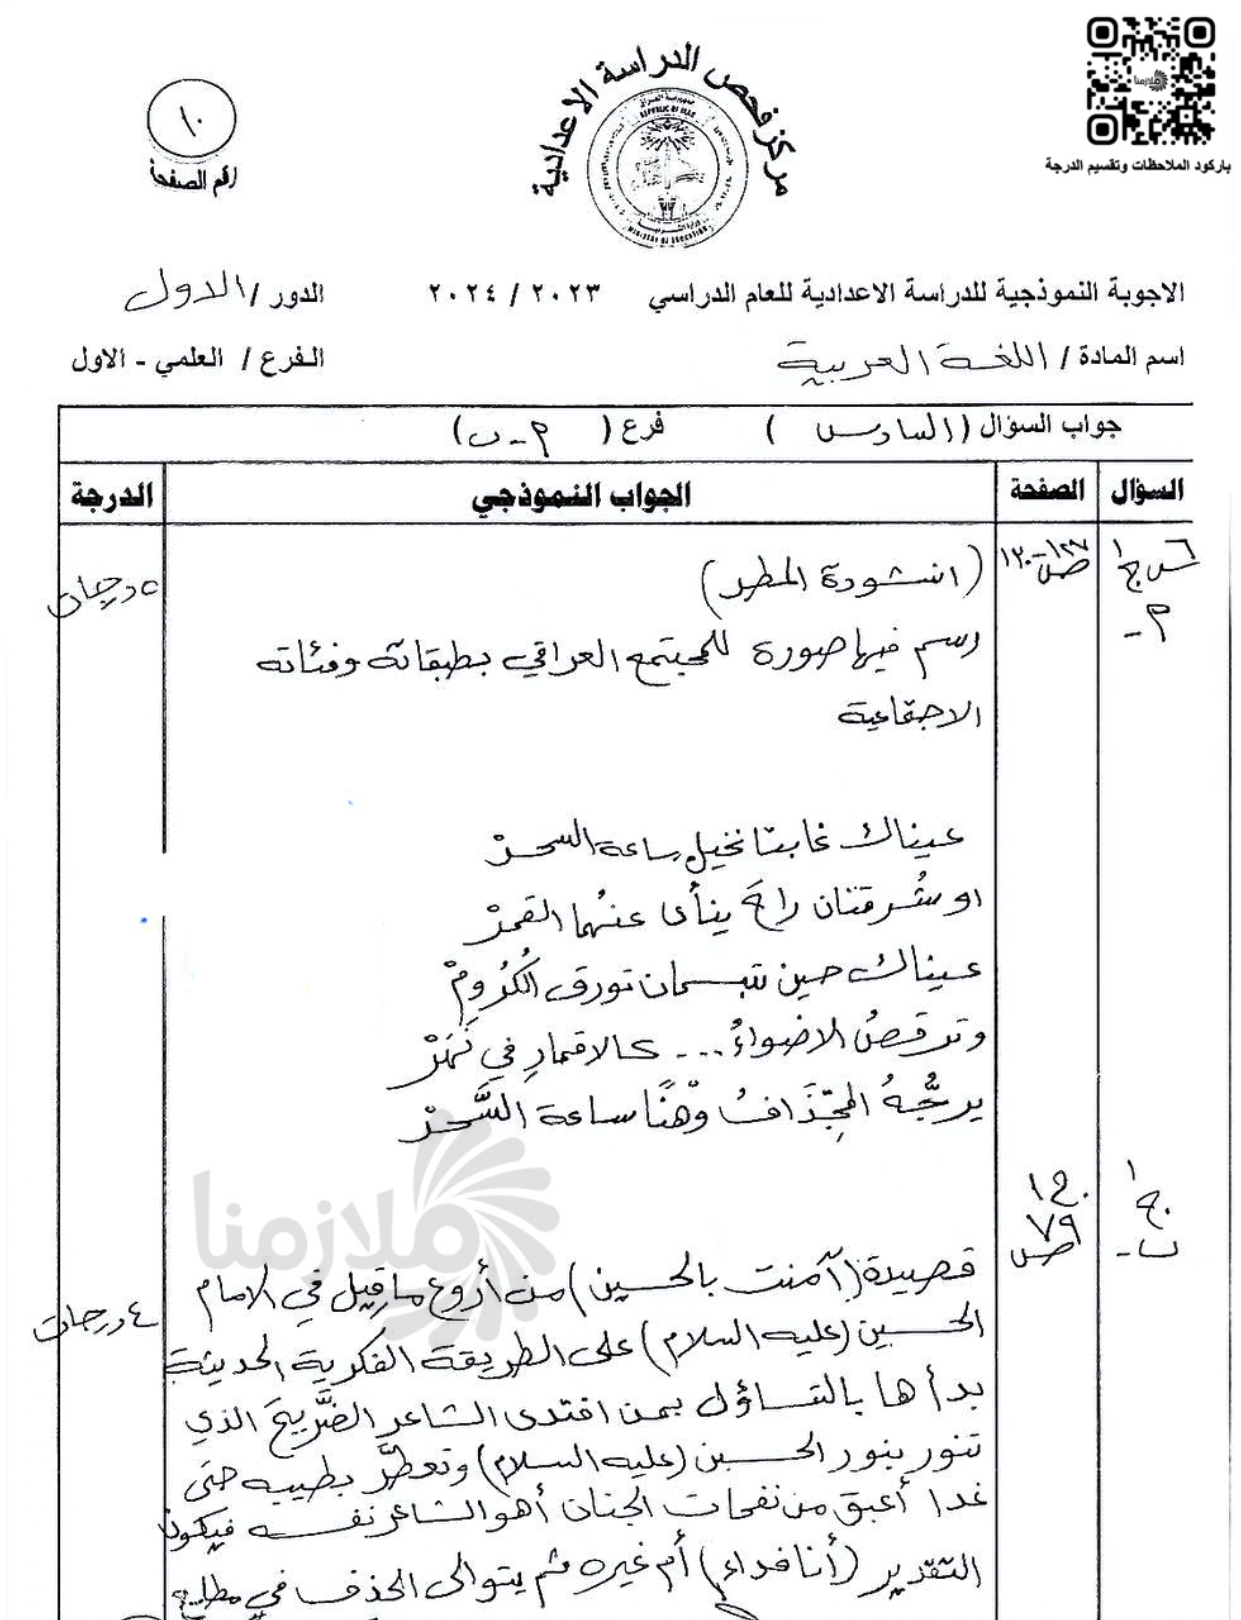 باركود الملاحظات وتقسيم الدرجة
مركز فحص الدراسة الاعدادية
١٠
رقم الصفحة
الاجوبة النموذجية للدراسة الاعدادية للعام الدراسي ٢٠٢٣ / ٢٠٢٤ الدور / الاول
اسم المادة / اللغة العربية الفرع / العلمي - الاول
جواب السؤال (السادس) فرع (م - ب)
السؤال الصفحة الجواب النموذجي الدرجة
(انشودة المطر)
٥ درجات
رسم فيها صورة للمجتمع العراقي بطبقاته وفئاته
الاجتماعية
عيناك غابتا نخيل ساعة السحرْ
او شُرفتان راحَ ينأى عنهُما القمرْ
عيناك حين تبسمان تورق الكُرُومْ
وترقصُ الاضواءُ... كالاقمارِ في نَهَرْ
يرجُّهُ المِجْذَافُ وَهْنًا ساعة السَّحرْ
ج١
ص٧٩
ملازمنا
قصيدة (آمنت بالحسين) من أروع ما قِيل في الامام
٤ درجات
الحسين (عليه السلام) على الطريقة الفكرية الحديثة
بدأها بالتساؤل بمن افتدى الشاعر الضَّريحَ الذي
تنور بنور الحسين (عليه السلام) وتعطَّر بطيبه حتى
غدا أعبق من نفحات الجنان أهو الشاعر نفسه فيكون
التقدير (أنا فداء) أم غيره ثم يتوالى الحذف في مطلع